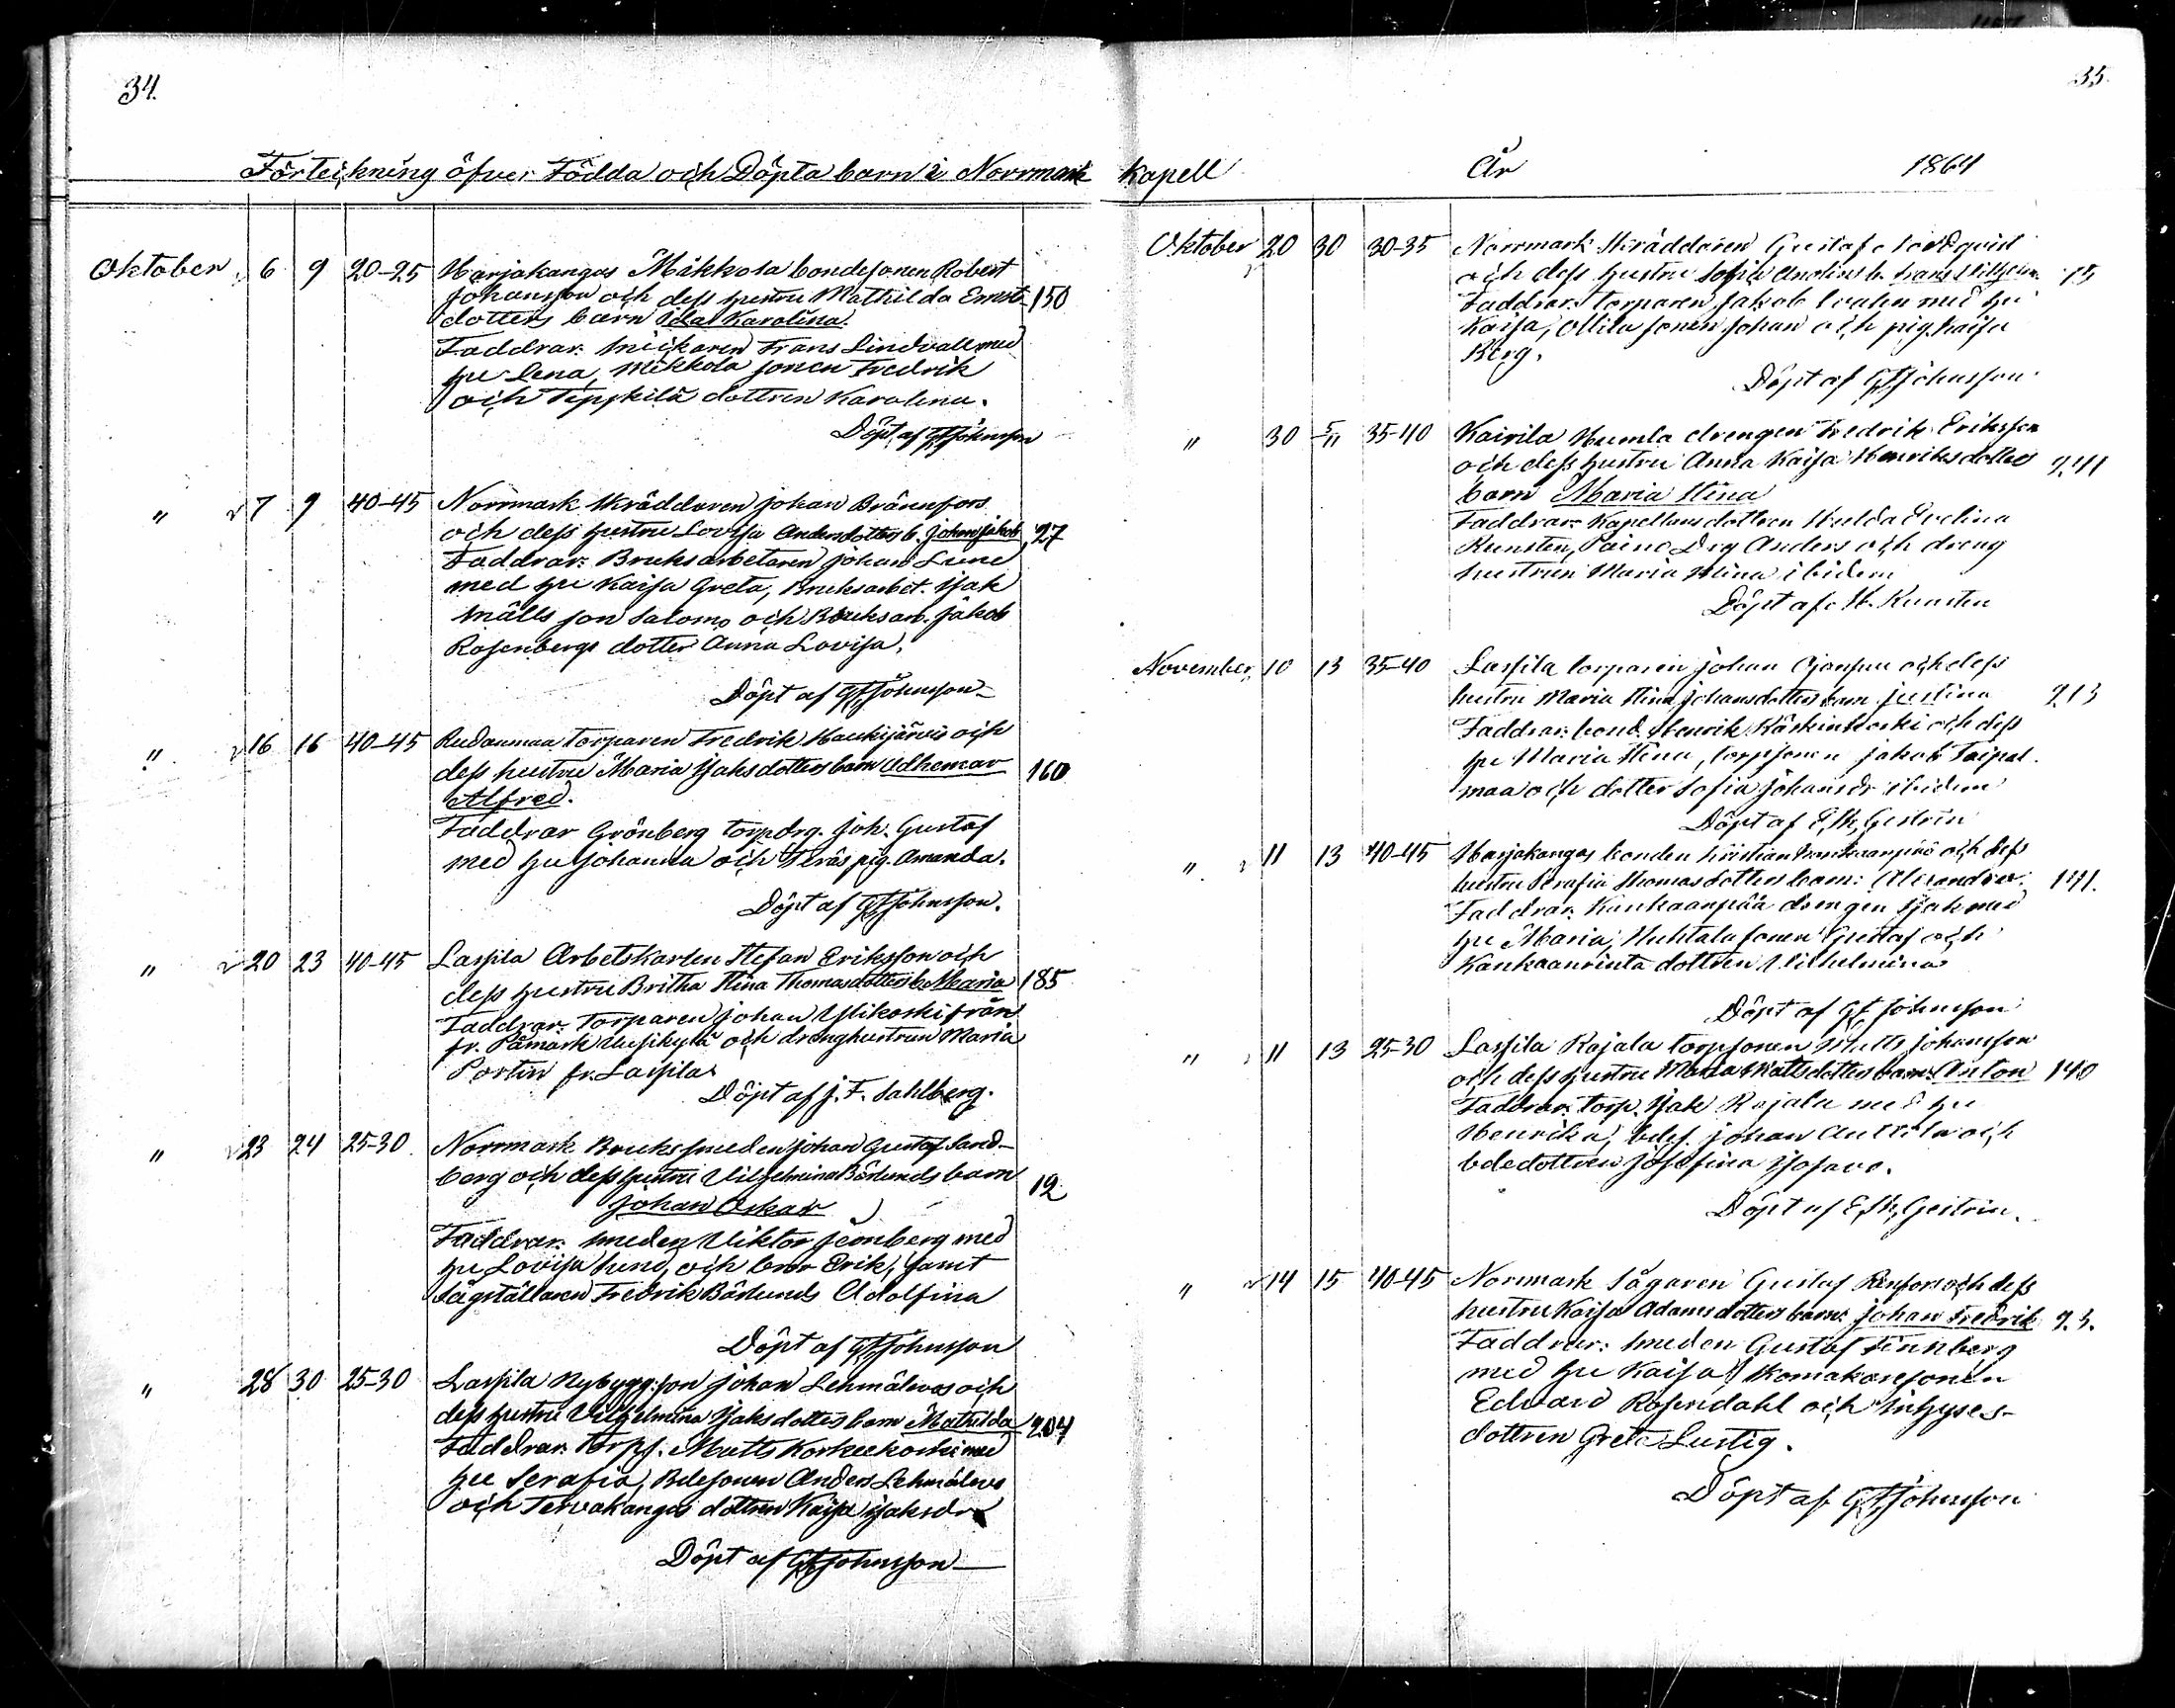 34.
Förteckning öfver Födda och Döpta barn i Norrmark
Oktober 6 9 20-25 Harjakangas Mikkola bondesonen Robert
Johansson och dess hustru Mathilda Ernst- 150
dotters barn Ida Karolina.
Faddrar: Snickaren Frans Lindvall med
hu Lena, Mikkola sonen Fredrik
och dottren Karolina.
Döpt af GFJohnsson
" 7 9 40-45 Norrmark Skräddaren Johan Brännfors
och dess hustru Lovisa Andersdotters b. Johan Jakob 27
Faddrar: Bruksarbetaren Johan Lund
med hu Kaisa Greta, Bruksarbet. Isak
Smålls son Salomo och Bruksarb. Jakob
Rosenbergs dotter Anna Lovisa.
Döpt af GFJohnsson
" 16 16 40-45 Rudanmaa torparen Fredrik Haukijärvi och
dess hustru Maria Isaksdotters barn Adhemar 160
Alfred.
Faddrar Grönberg torpdrg. Joh. Gustaf
med hu Johanna och Teräs pig. Amanda.
Döpt af GFJohnsson.
" 20 23 40-45 Lassila Arbetskarlen Stefan Eriksson och
dess hustru Britha Stina Thomasdotters b. Maria 185
Faddrar: Torparen Johan Ylikoski från
fr. Påmark Uusikylä och dränghustrun Maria
Portin fr. Lassila
Döpt af J. F. Sahlberg.
" 23 24 25-30 Norrmark Brukssmeden Johan Gustaf Sand-
berg och dess hustru Vilhelmina Bärlunds barn 12
Johan Oskar
Faddrar: Smeden Viktor Jernberg med
hu Lovisa Lund, och bror Erik, samt
Sågställaren Fredrik Bärlunds Adolfina
Döpt af GFJohnsson
" 28 30 25-30 Lassila Nybygg:son Johan Lehmälevas och
dess hustru Vilhelmina Isaksdotters barn Mathilda 204
Faddrar: Torps. Matts Korkeekoski med
hu Serafia, Bdesonen Anders Lehmäleva
och Tervakangas dottren Kaisa Isaksdr
Döpt af GFJohnsson
35.
Kapell År 1864
Oktober 20 30 30-35 Norrmark Skräddaren Gustaf Nordqvist
och dess hustru Sofia b. Frans Vilhelm 15
Faddrar: torparen Jakob med hu
Kaisa, Ollila sonen Johan och pig. Kaisa
Berg.
Döpt af GFJohnsson
" 30 5/11 35-40 Kairila Humla drengen Fredrik Eriksson
och dess hustru Anna Kaisa Henriksdotters 241
barn Maria Stina
Faddrar: Kapellans dottren Hulda Evelina
Kunsten, Paino Drg Anders och dreng
hustrun Maria Stina ibidem
Döpt af H. Kunsten
November 10 13 35-40 Lassila torparen Johan Ojanpuu och dess
hustru Maria Stina Johansdotters barn Justina 213
Faddrar: bond. Henrik Käskinkoski och dess
hu Maria Stina, torpsonen Jakob Taipal.
maa och dotter Sofia Johansdr ibidem
Döpt af E. W. Gestrin
" 11 13 40-45 Harjakangas bonden Kristian Kankaanpää och dess
hustru Serafia Thomasdotters barn: Alexandra. 141.
Faddrar: Kankaanpää drengen Isak med
hu Maria, Huhtala sonen Gustaf och
Kankaanrinta dottren Vilhelmina
Döpt af GFJohnsson
" 11 13 25-30 Lassila Rajala torpsonen Matts Johansson
och dess hustru Maria Mattsdotters barn: Anton 140
Faddrar: torp. Isak Rajala med hu
Henrika, bdes. Johan Anttila och
bdedottren Josefina Isotavo.
Döpt af E. W. Gestrin.
" 14 15 40-45 Norrmark Sågaren Gustaf Renfors och dess
hustru Kaisa Adamsdotters barn: Johan Fredrik 23.
Faddrar: Smeden Gustaf Finnberg
med hu Kaisa, Skomakaresonen
Edvard Rosendahl och Inhyses-
dottren Greta Lustig.
Döpt af GFJohnsson